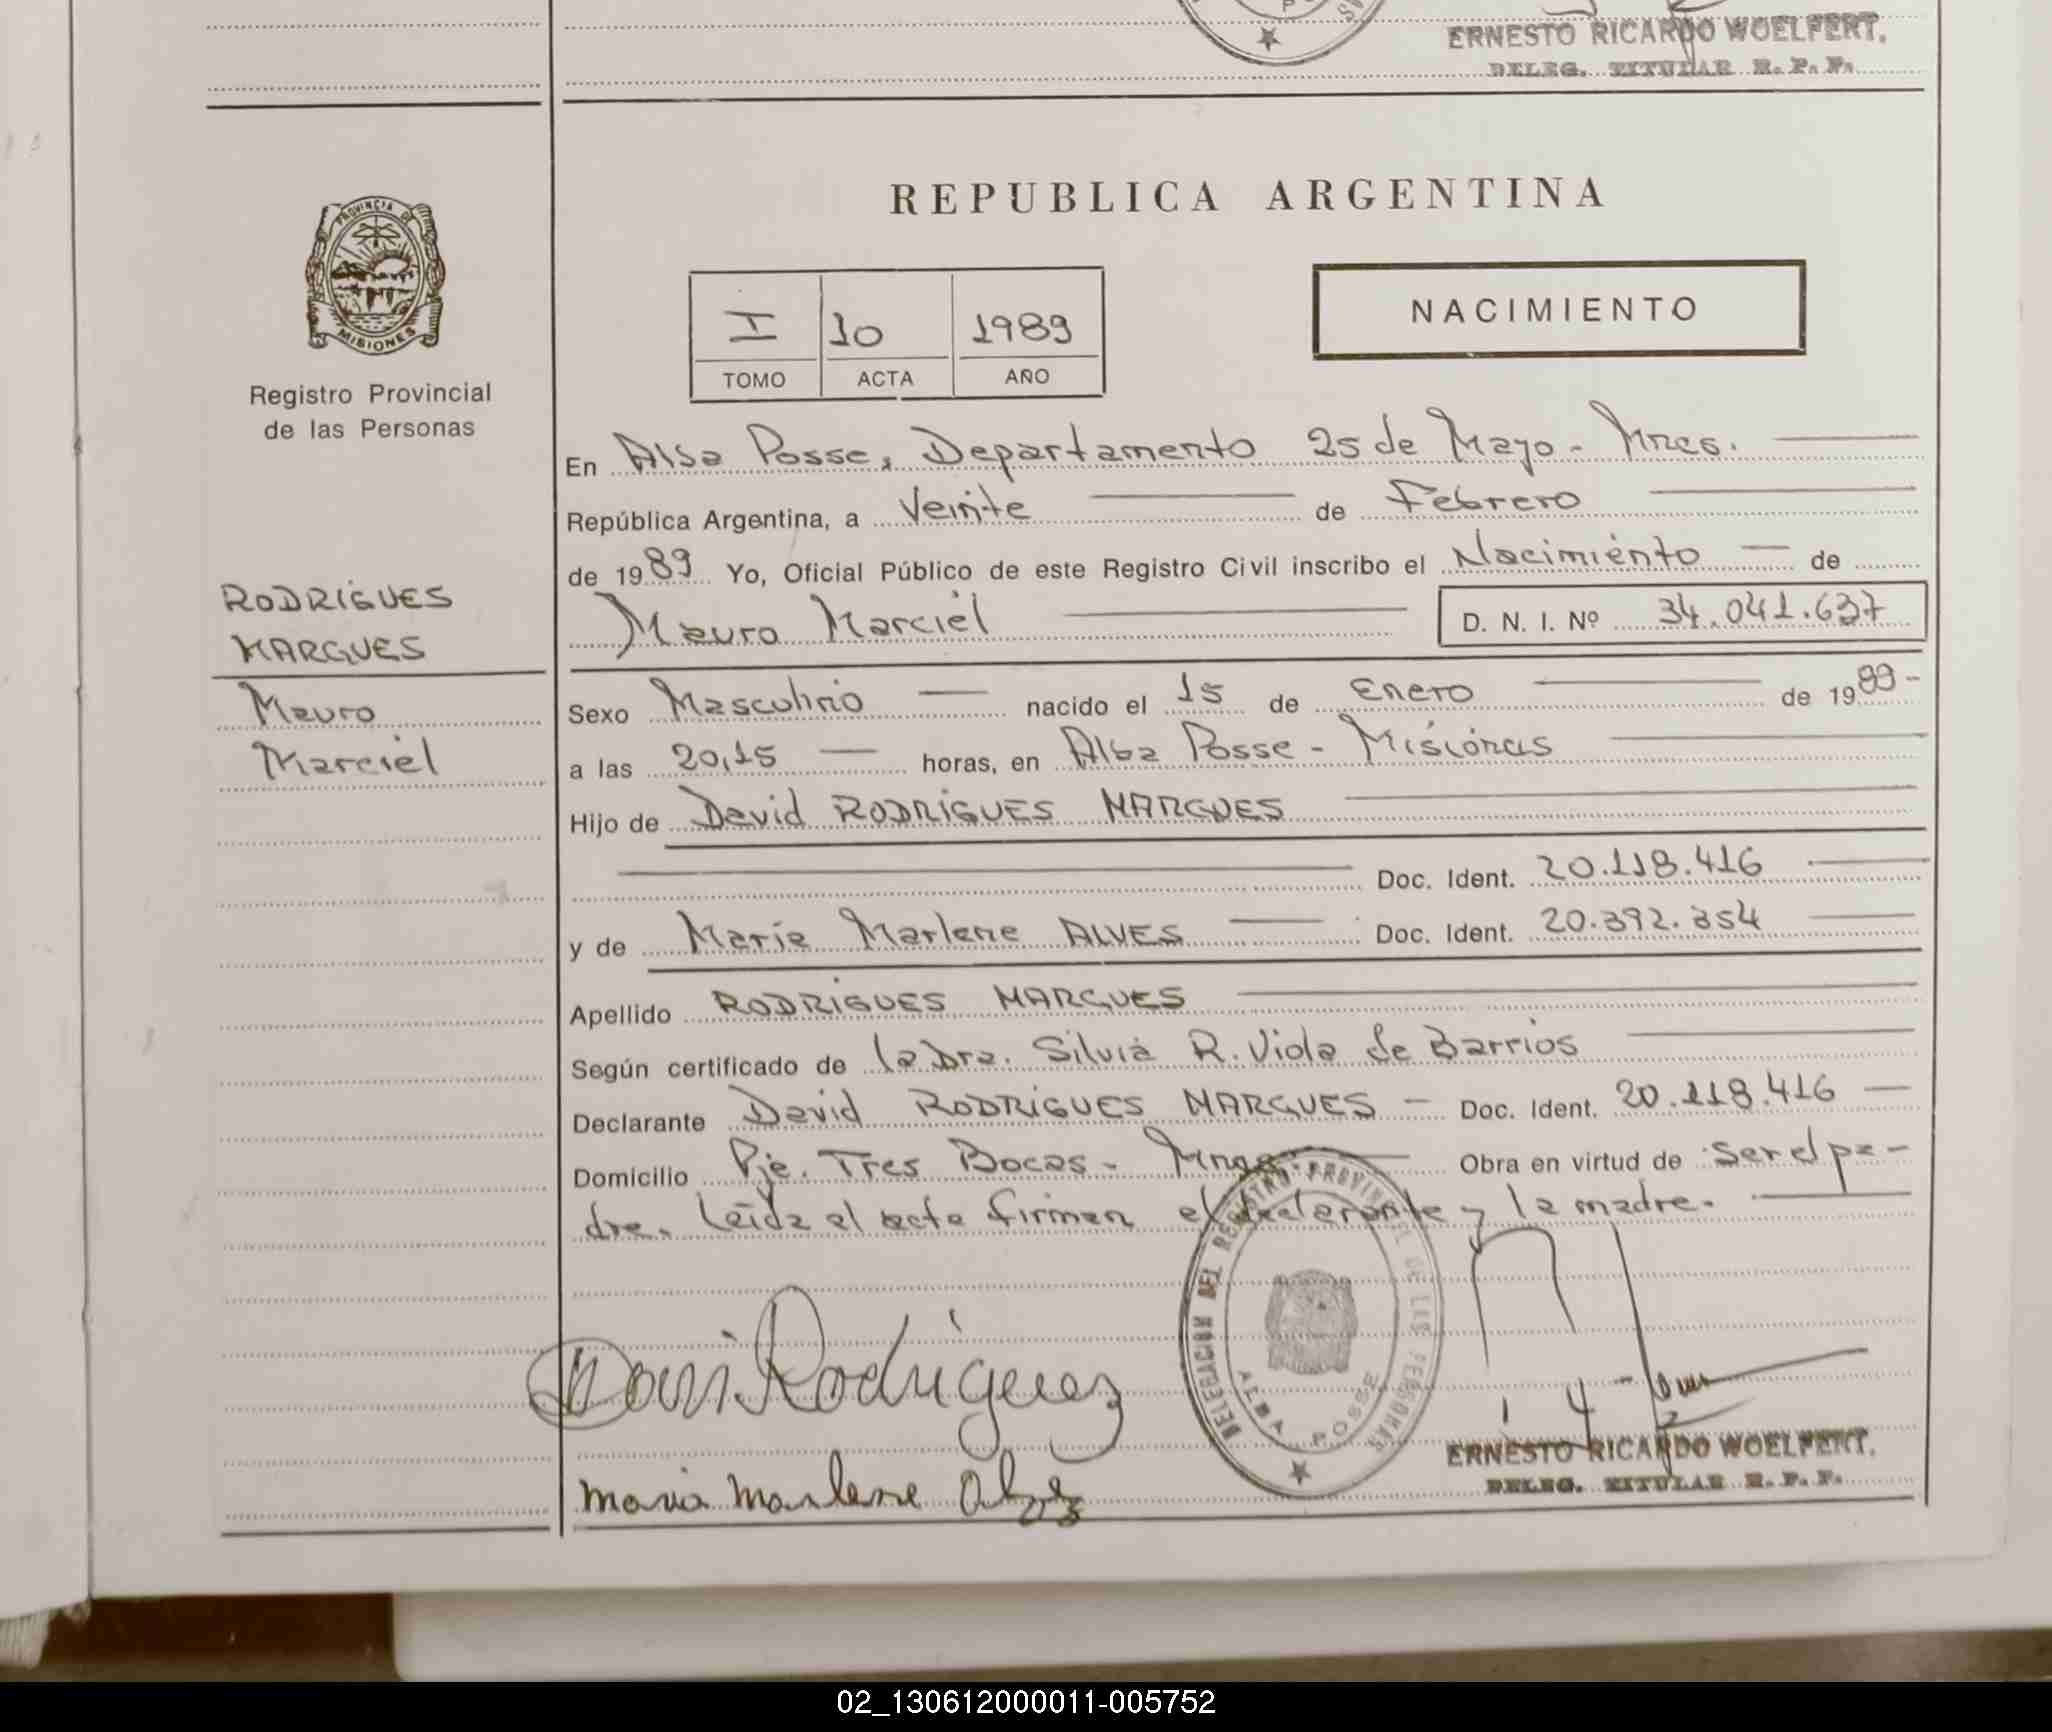 ERNESTO RICARDO WOELFERT.
DELEG. TITULAR R. P. P.
PROVINCIA DE
MISIONES
Registro Provincial
de las Personas
REPUBLICA ARGENTINA
I 10 1989
TOMO ACTA AÑO
NACIMIENTO
En Alba Posse, Departamento 25 de Mayo - Mnes.
República Argentina, a Veinte de Febrero
de 1989 Yo, Oficial Público de este Registro Civil inscribo el Nacimiento de
RODRIGUES
MARQUES
Mauro
Marciel
Mauro Marciel D. N. I. Nº 34.041.637
Sexo Masculino nacido el 15 de Enero de 1989-
a las 20,15 horas, en Alba Posse - Misiones
Hijo de David RODRIGUES MARQUES
Doc. Ident. 20.118.416
y de Maria Marlene ALVES Doc. Ident. 20.392.354
Apellido RODRIGUES MARQUES
Según certificado de la Dra. Silvia R. Viola de Barrios
Declarante David RODRIGUES MARQUES - Doc. Ident. 20.118.416
Domicilio Pje. Tres Bocas - Obra en virtud de ser el pa-
dre. Leída el acta firman el declarante y la madre.
DELEGACION DEL REGISTRO PROVINCIAL DE LAS PERSONAS
ALBA POSSE
Rodriguez
Maria Marlene Alves
ERNESTO RICARDO WOELFERT.
DELEG. TITULAR R. P. P.
02_130612000011-005752